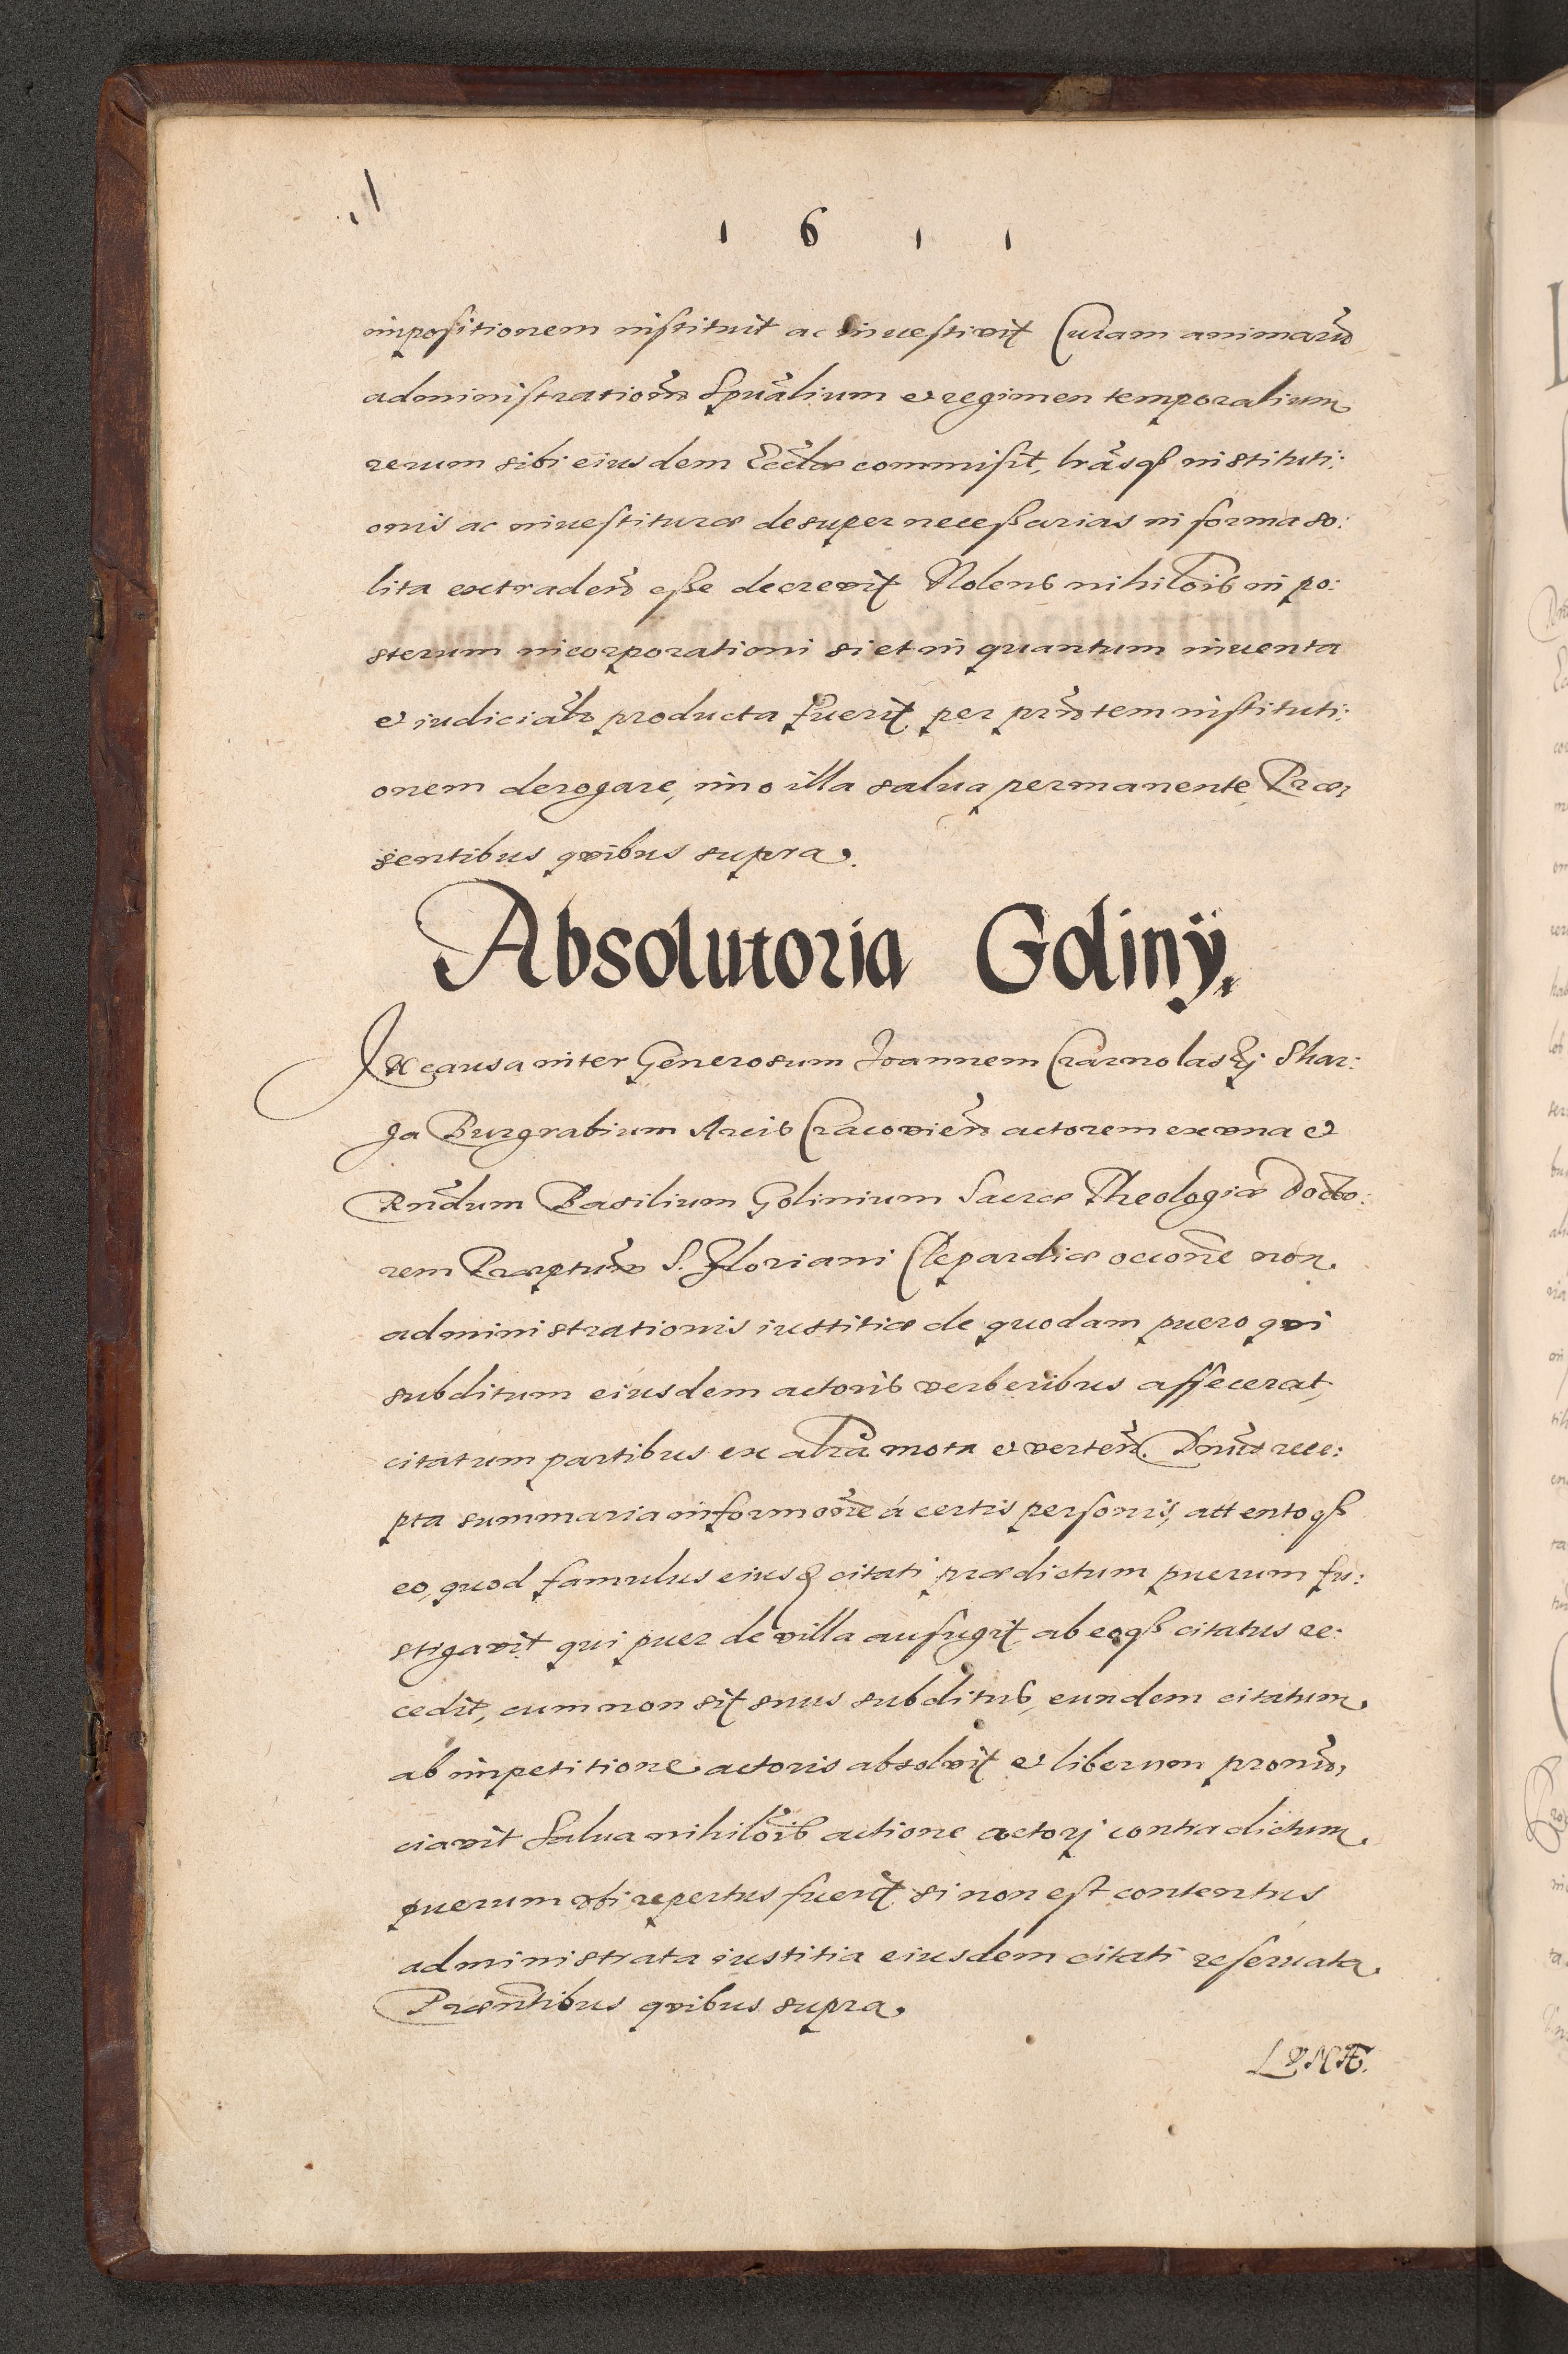 1 6 1 1
impositionem instituit ac inuestivit Curam animarũ
administrationẽ Spũalium et regimen temporalium
rerum sibi eiusdem Eccliæ commisit, lrãsq́ȝ instituti:
onis ac inuestituræ desuper necessarias in forma so:
lita extradeñ esse decrevit Nolens nihilõis in po:
sterum incorporationi si et in quantum inuenta
et iudicialr̃ producta fuerit per prñtem instituti:
onem derogare, imo illa salua permanente. Præ,
sentibus qvibus supra.
Absolutoria Golinÿ.
In causa inter Generosum Joannem Czarnolaskj Skar:
ga Burgrabium Arcis Cracovieñ actorem ex vna et
Rñdum Basilium Golinium Sacræ Theologiæ Docto:
rem Præptum̃ S. Floriani Clepardiæ occõne non
administrationis iustitiæ de quodam puero qvi
subditum eiusdem actoris verberibus affecerat,
citatum partibus ex alrã mota et verteñ. Dñus rece:
pta summaria informõne á certis personis, attentoq́ȝ
eo, quod famulus eiusd citati prædictum puerum fu:
stigavit qui puer de villa aufugit, ab eoq́ȝ citatus re:
cedit, cum non sit suus subditus, eundem citatum
ab impetitione actoris absolvit et liberum pronũ,
ciavit Salua nihilõis actione actorj contra dictum
puerum vbi repertus fuerit, si non est contentus
administrata iustitia eiusdem citati reseruata.
Præsñtibus qvibus supra.